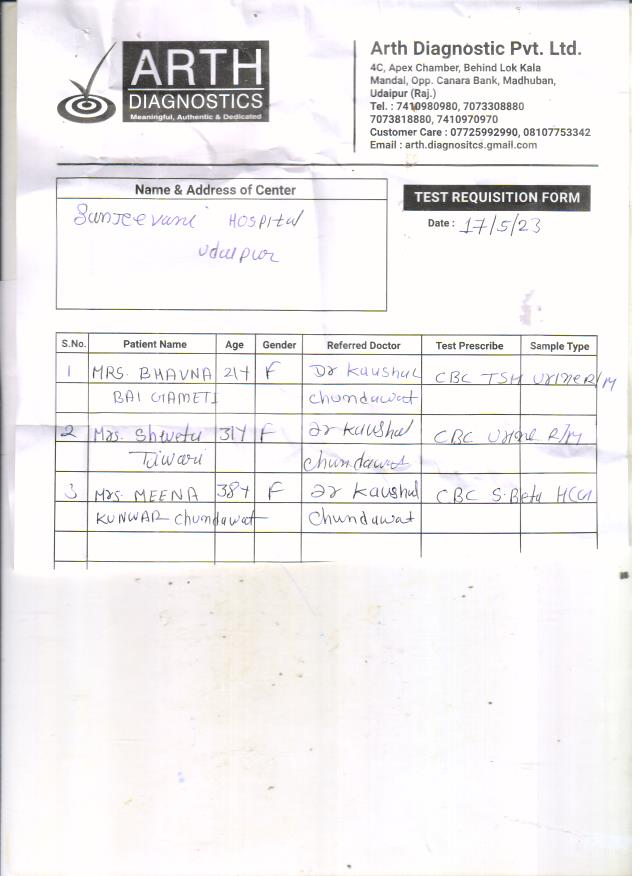 ARTH
DIAGNOSTICS
Meaningful, Authentic & Dedicated
Arth Diagnostic Pvt. Ltd.
4C, Apex Chamber, Behind Lok Kala
Mandal, Opp. Canara Bank, Madhuban,
Udaipur (Raj.)
Tel. : 7410980980, 7073308880
7073818880, 7410970970
Customer Care : 07725992990, 08107753342
Email : arth.diagnositcs.gmail.com
Name & Address of Center
Sunjeevani HOSPItal
Udaipur
TEST REQUISITION FORM
Date : 17/5/23
S.No. Patient Name Age Gender Referred Doctor Test Prescribe Sample Type
1 MRS. BHAVNA 21Y F Dr Kaushal CBC TSH Urine R/M
BAI GAMETI chundawat
2 Mrs. Shweta 31Y F Dr Kaushal CBC Urine R/M
Tiwari Chundawat
3 Mrs. MEENA 38Y F Dr Kaushal CBC S. Beta HCG
KUNWAR Chundawat Chundawat